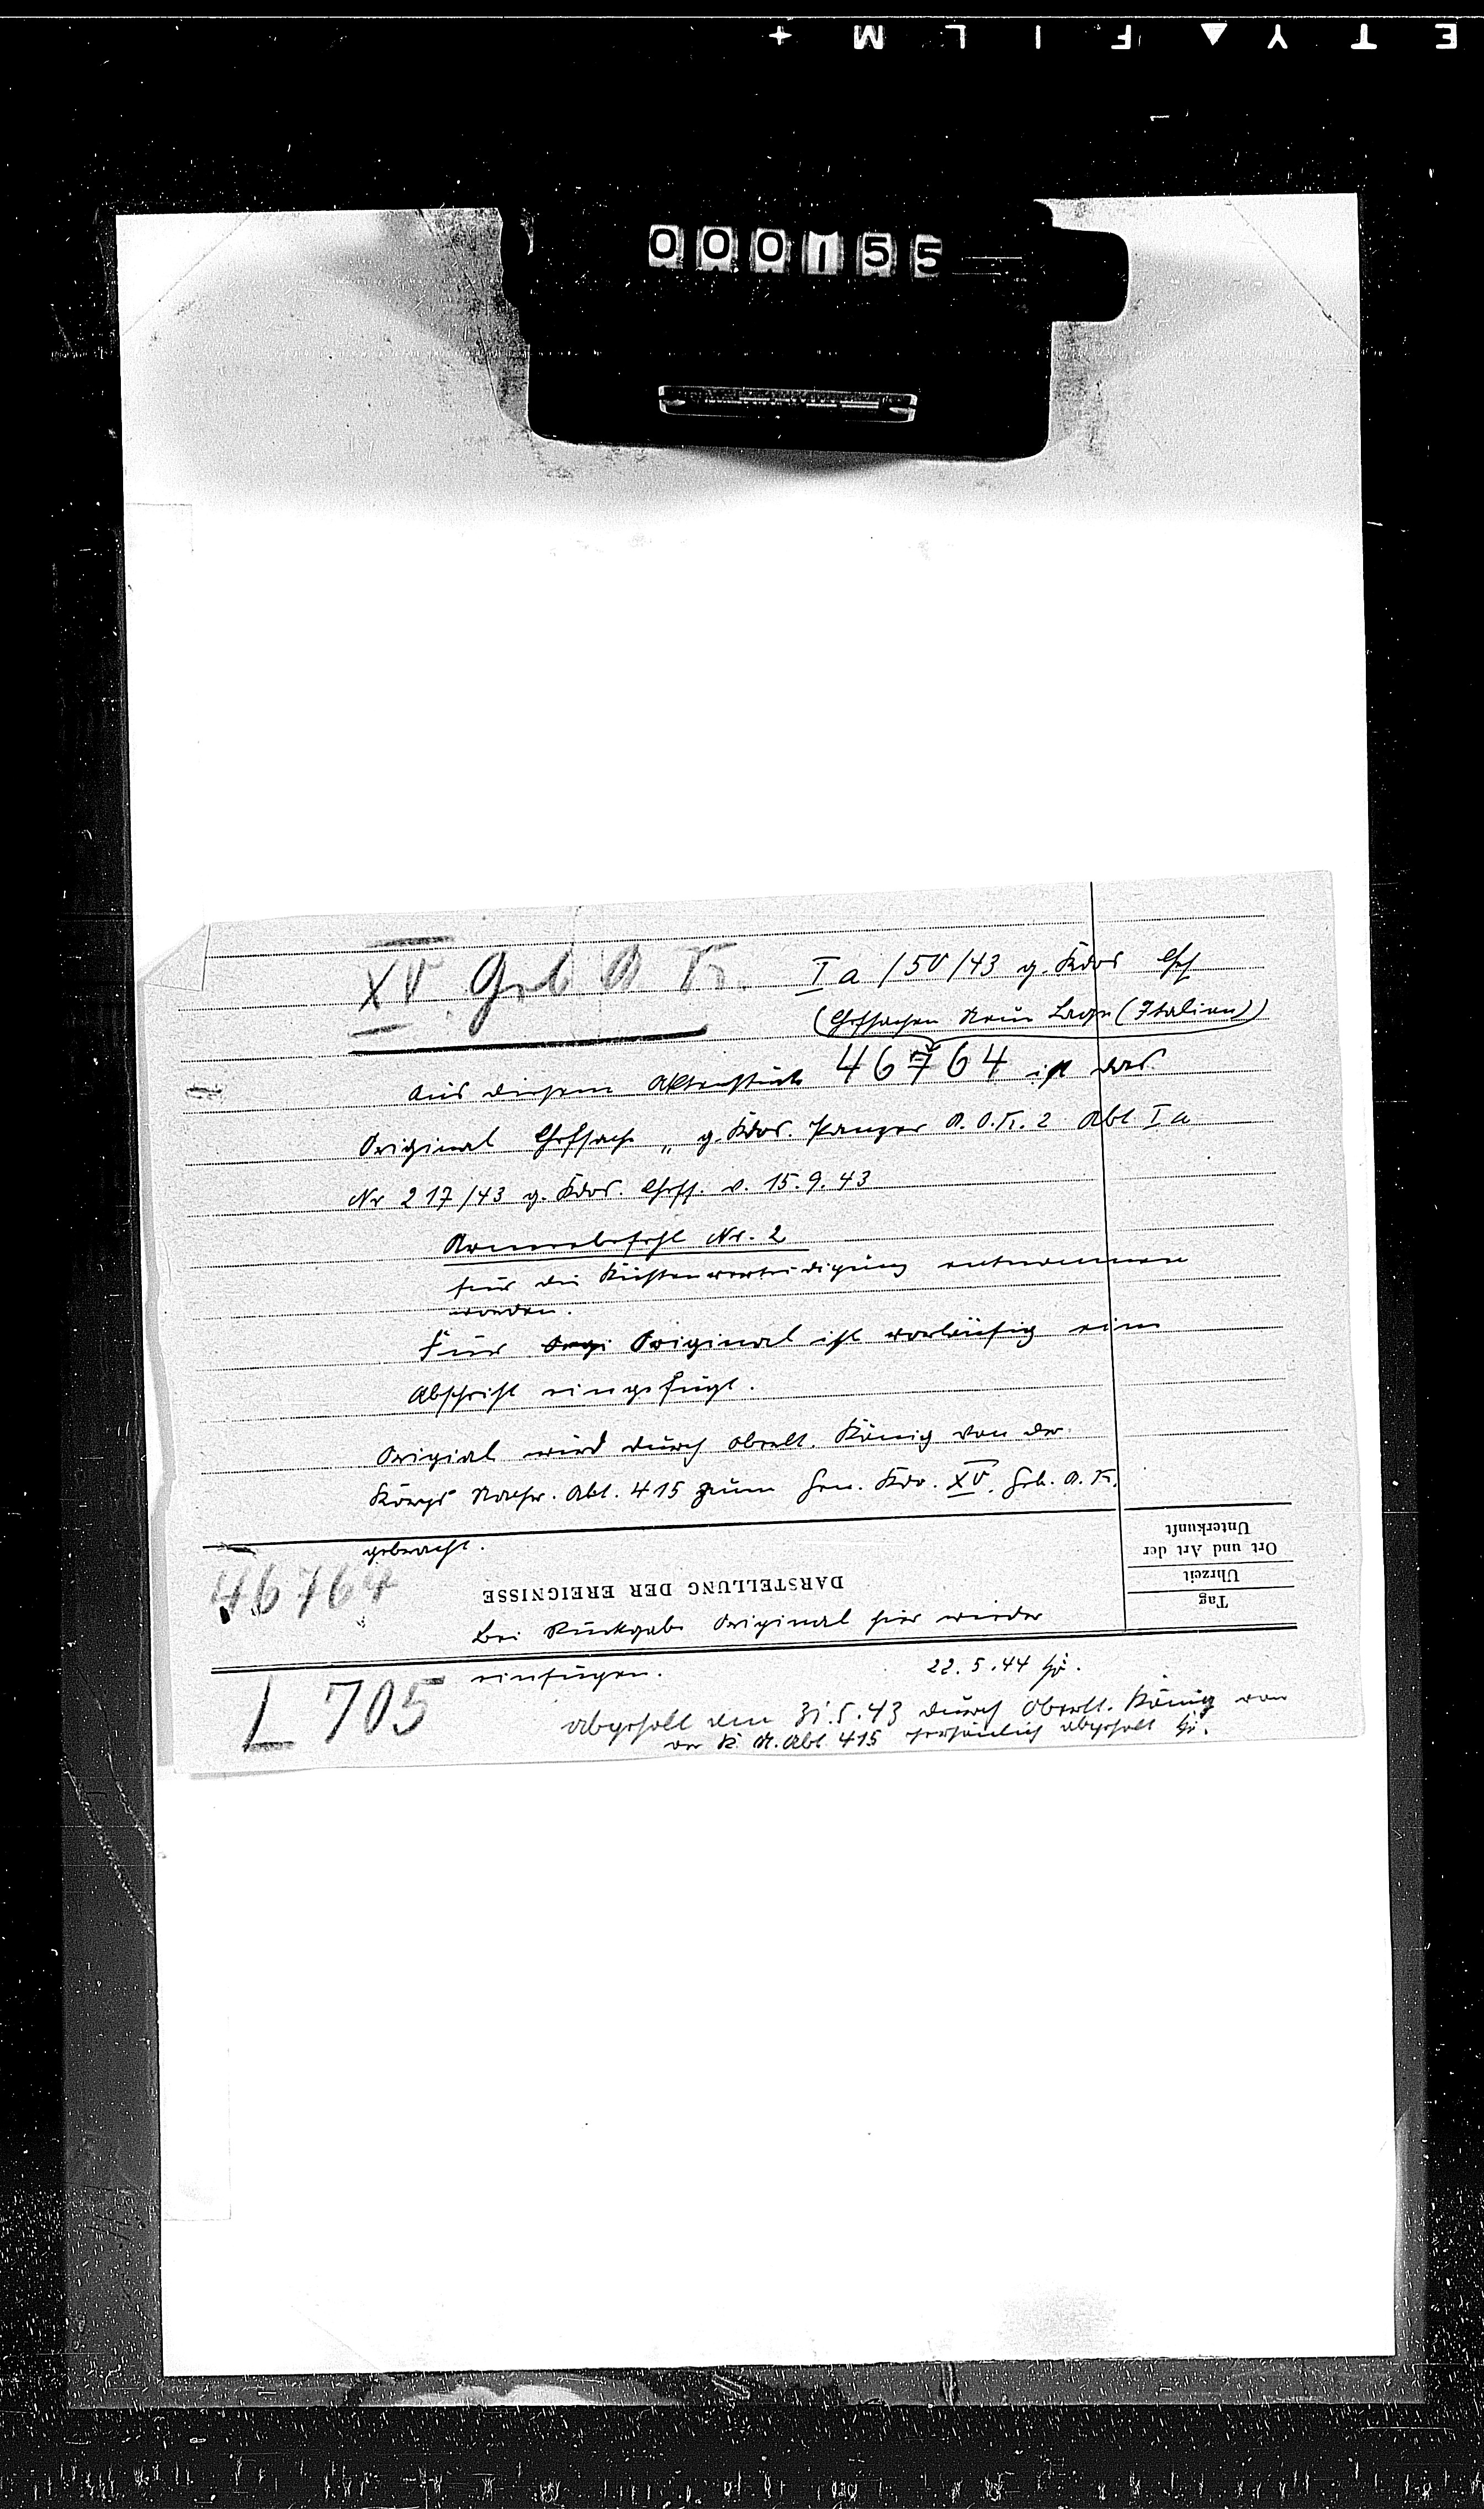 E T Y ▲ F I L M +
000155
XV. Geb. A. K.
Ia /50/43 g. Kdos Chefs
(Chefsachen Neue Lage (Italien))
Aus diesem Aktenstück 46764 ist das
Original Chefsache „ g. Kdos. Panzer A.O.K. 2 Abt. Ia
Nr 217/43 g. Kdos. Chefs. v. 15.9.43
Armeebefehl Nr. 2
für die Küstenverteidigung entnommen
worden.
Für Orgi Original ist vorläufig eine
Abschrift eingefügt.
Origial wird durch Oberlt. König von der
Korps Nachr. Abt. 415 zum Gen. Kdo. XV. Geb. A. K.
gebracht.
Tag
Uhrzeit
Ort und Art der
Unterkunft
DARSTELLUNG DER EREIGNISSE
46764
Bei Rückgabe Original hier wieder
einfügen.
22.5.44
L 705
Abgeholt den 31.5.43 durch Oberlt. König von
der K. N. Abt. 415 persönlich abgeholt